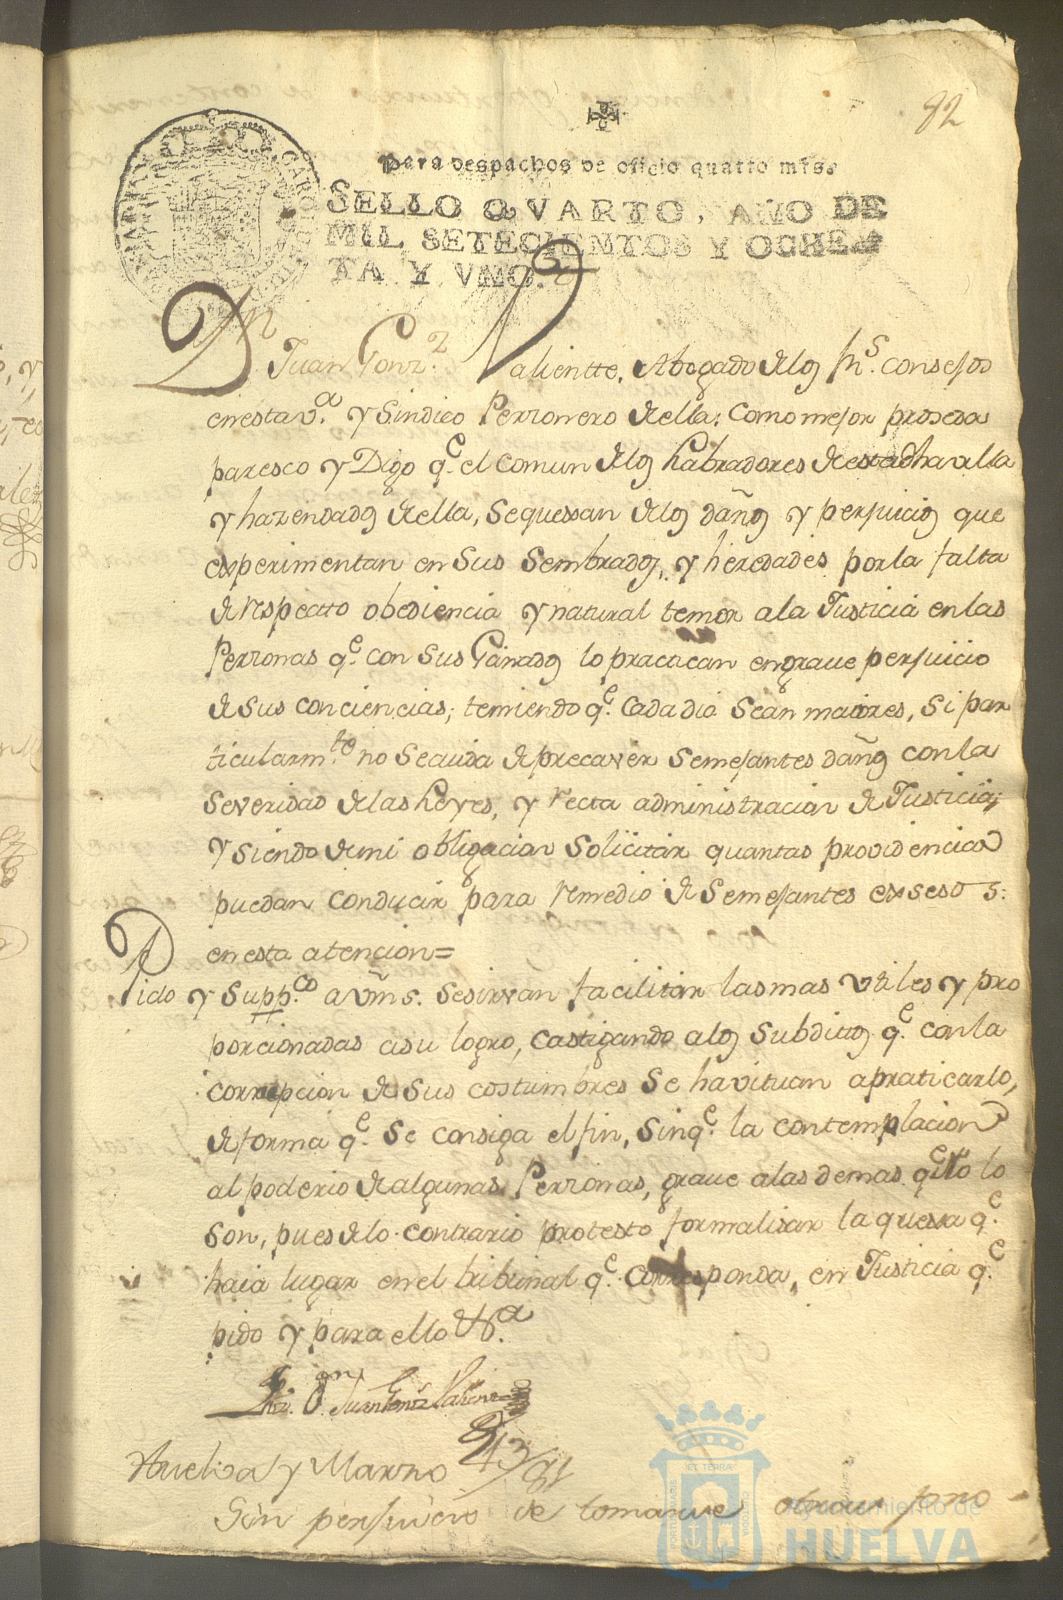 82
Para despachos de oficio quatro mrs.
SELLO QVARTO, AÑO DE
MIL SETECIENTOS Y OCHEN
TA Y VNO.
Dn Juan Gonz.z Valientte, Abogado de los Rs. consejos
en esta v.a y Sindico Perzonero de ella: como mejor proseda
paresco y Digo q.e el comun de los Labradores de esta dha villa
y hazendados de ella, se quexan de los daños y perjuicios que
experimentan en sus sembrados, y heredades por la falta
de respecto obediencia y natural temor a la Justicia en las
Perzonas q.e con sus Ganados lo practican en grave perjuicio
de sus conciencias; temiendo q.e cada dia sean maiores, si par
ticularm.te no se cuida de precaver semejantes daños con la
severidad de las Leyes, y recta administracion de Justicia;
y siendo de mi obligacion solicitar quantas providencias
puedan conducir para remedio de semejantes exsesos:
en esta atencion=
Pido y Supp.co a vms. se sirvan facilitar las mas utiles y pro
porcionadas a su logro, castigando a los subditos q.e con la
corrupcion de sus costumbres se havituan a praticarlo,
de forma q.e se consiga el fin, sin q.e la contemplacion
al poderio de algunas Perzonas, grave a las demas q.e no lo
son, pues de lo contrario protesto formalisar la quexa q.e
haia lugar en el tribunal q.e corresponda, en Justicia q.e
pido y para ello &.a
Liz. Dn. Juan Gonz Valiente
Huelva y Marzo 13/81
Sin perjuicio de tomar
Ayuntamiento de
HUELVA